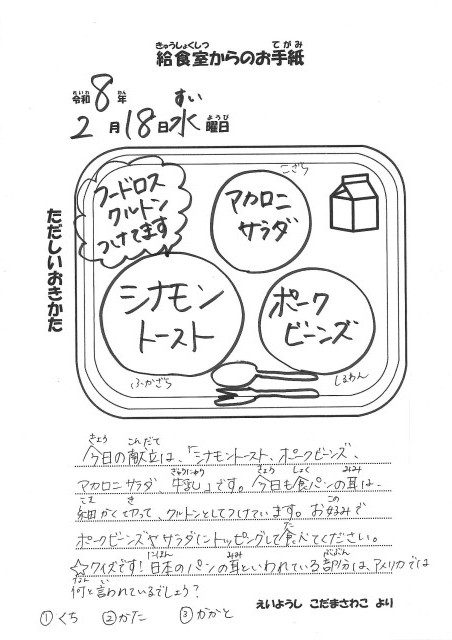 給食室からのお手紙
きゅうしょくしつ てがみ
令和8年
れいわ ねん
2月18日水曜日
すい ようび
フードロス
クルトン
つけてます
こざら
アカロニ
サラダ
ただしいおきかた
シナモン
トースト
ふかざら
ポーク
ビーンズ
しるわん
きょう こんだて
今日の献立は、「シナモントースト、ポークビーンズ、
ぎゅうにゅう きょう しょく みみ
アカロニサラダ、牛乳」です。今日も食パンの耳は、
こま き この
細かく切って、クルトンとしてつけています。お好みで
た
ポークビーンズやサラダにトッピングして食べてください。
にほん みみ ぶぶん
☆クイズです!日本のパンの耳といわれている部分は、アメリカでは
なん い
何と言われているでしょう?
①くち ②かた ③かかと
えいようし こだまさわこ より